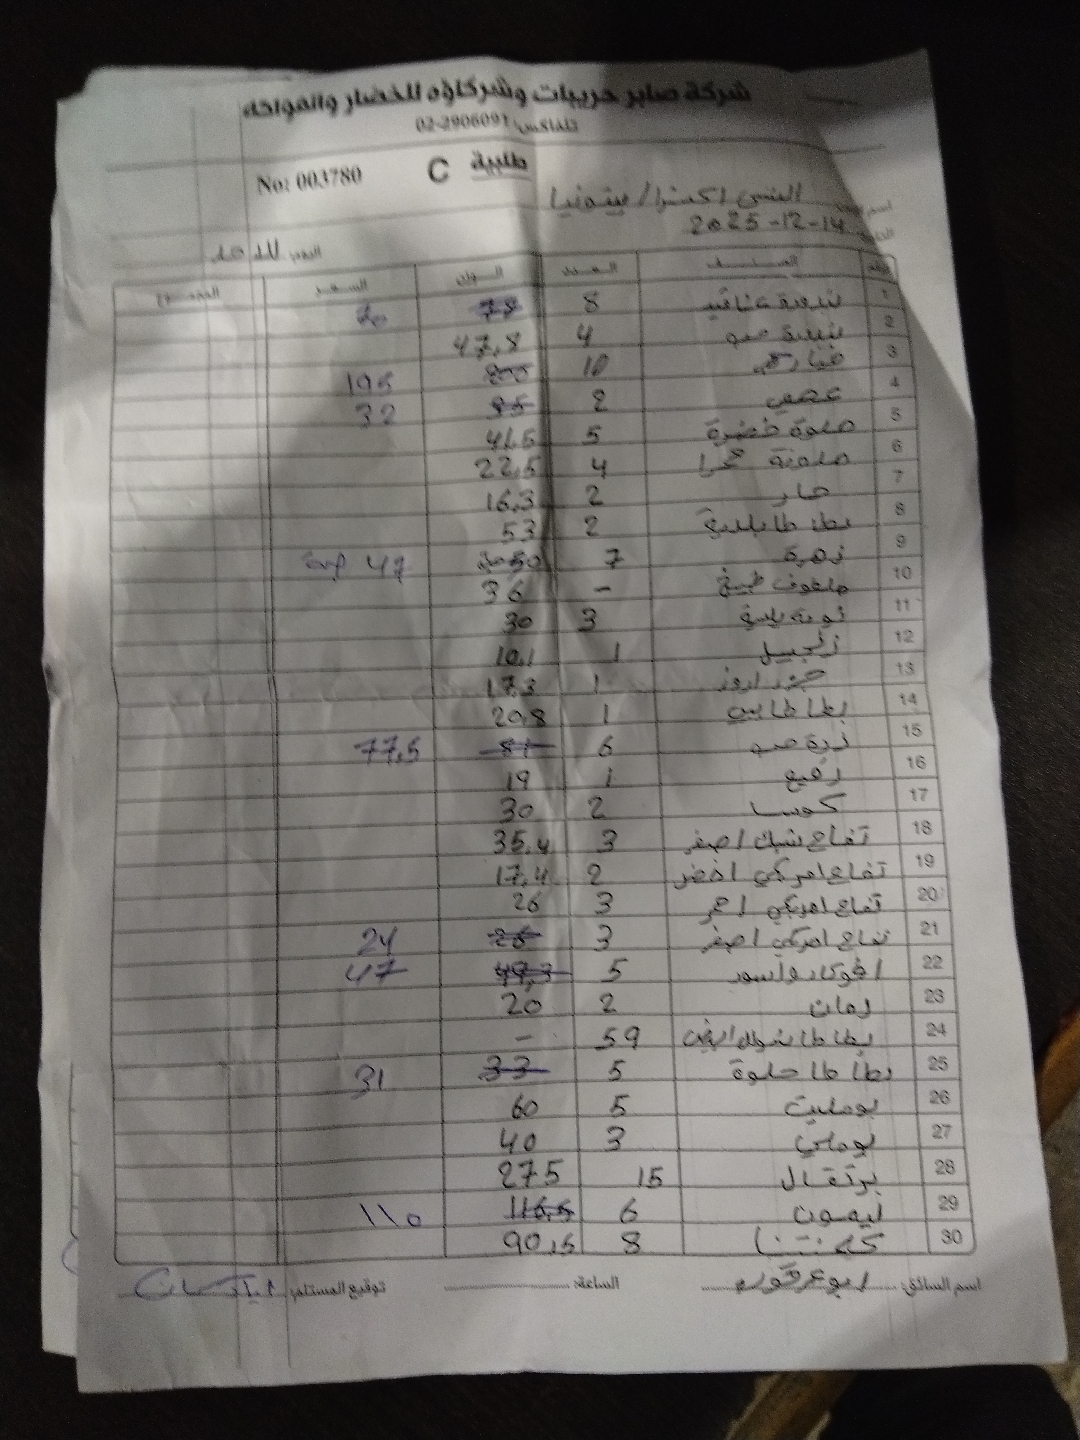 شركة صابر حريبات وشركاؤه للخضار والفواكه
تلفاكس: 02-2906091
طلبية C No: 003780
اكسترا / بيتونيا
2025-12-14
اليوم: للاحد
رقم الصنف العدد الوزن السعر المجموع
1 بندورة عناقيد 8 78
2 بندورة 4 47,8
3 خيار 10 195
4 2 95 32
5 حلوة خضرة 5 41,5
6 ملونة حمرا 4 22,5
7 حار 2 16,3
8 بطاطا بلدية 2 53
9 زهرة 7 50 47
10 ملفوف طبيخ - 36
11 3 30
12 زنجبيل 1 10,1
13 جزر 1 17,3
14 بطاطا 1 20,8
15 ذرة 6 81 77,5
16 رفيع 1 19
17 كوسا 2 30
18 تفاح شبك اصفر 3 35,4
19 تفاح امريكي اخضر 2 17,4
20 تفاح امريكي احمر 3 26
21 تفاح امريكي اصفر 3 26 24
22 5 47
23 رمان 2 20
24 بطاطا شوال 59 -
25 بطاطا حلوة 5 33 31
26 بومليت 5 60
27 بوملي 3 40
28 برتقال 15 275
29 ليمون 6 116,5 110
30 كلمنتينا 8 90,5
اسم السائق: الساعة: توقيع المستلم: